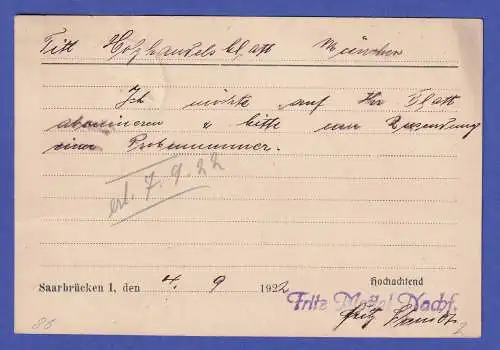 Titl Holzhandelsblatt München
Ich möchte auf Ihr Blatt
abonnieren & bitte um Zusendung
einer Probenummer.
erl. 7.9.22
Saarbrücken 1, den 4. 9 1922 Hochachtend
Fritz Nachf.
Fritz
86